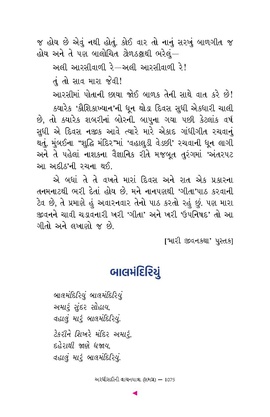 જ હોય છે એવું નથી હોતું. કોઈ વાર તો નાનું સરખું બાળગીત જ
હોય અને તે પણ બાલોચિત ટોળટપ્પાંથી ભરેલું—
અલી આરસીવાળી રે—અલી આરસીવાળી રે!
તું તો સાવ મારા જેવી!
આરસીમાં પોતાની છાયા જોઈ બાળક તેની સાથે વાત કરે છે!
ક્યારેક 'કૌશિકાખ્યાન'ની ધૂન થોડા દિવસ સુધી એકધારી ચાલી
છે, તો ક્યારેક શબરીનાં બોરની. બાપુના ગયા પછી કેટલાંક વર્ષ
સુધી એ દિવસ નજીક આવે ત્યારે મારે એકાદ ગાંધીગીત રચવાનું
થતું. મુંબઈના "શુદ્ધિ મંદિર"માં 'વહાલુડી વેડછી' રચવાની ધૂન લાગી
અને તે પહેલાં નાશકના વૈજ્ઞાનિક રીતે મજબૂત તુરંગમાં 'અંતરપટ
આ અદીઠ'ની રચના થઈ.
એ બધાં તે તે વખતે મારાં દિવસ અને રાત એક પ્રકારના
તનમનાટથી ભરી દેતાં હોય છે. મને નાનપણથી 'ગીતા'પાઠ કરવાની
ટેવ છે, તે પ્રમાણે હું અવારનવાર તેનો પાઠ કરતો રહું છું. પણ મારા
જીવનને ચાવી ચડાવનારી ખરી 'ગીતા' અને ખરી 'ઉપનિષદ' તો આ
ગીતો અને લખાણો જ છે.
['મારી જીવનકથા' પુસ્તક]
બાલમંદિરિયું
બાલમંદિરિયું બાલમંદિરિયું
અમારું સુંદર સોહાય,
વહાલું મારું બાલમંદિરિયું.
ટેકરીને શિખરે મંદિર અમારું,
દહેરાથી જાણે ધજાય,
વહાલું મારું બાલમંદિરિયું.
1075